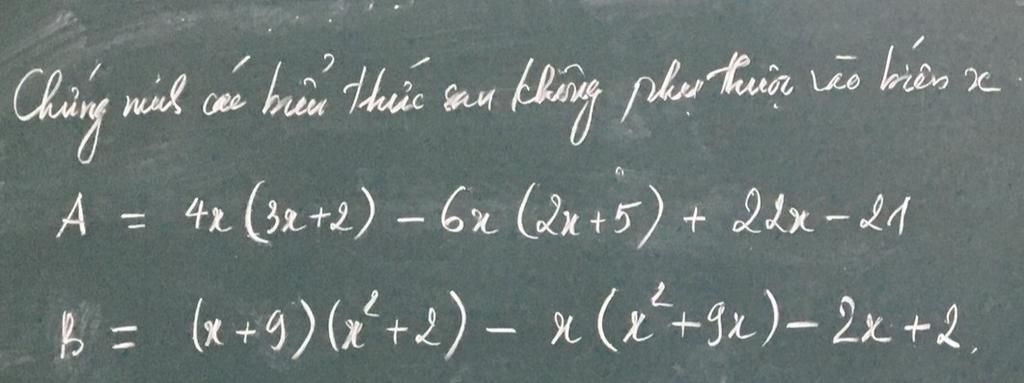 Chứng minh các biểu thức sau không phụ thuộc vào biến x
A = 4x(3x+2) – 6x(2x+5) + 22x – 21
B = (x+9)(x²+2) – x(x²+9x) – 2x+2.